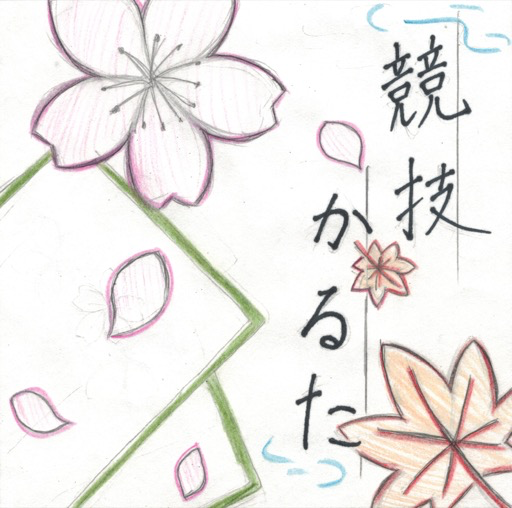 競技
かるた